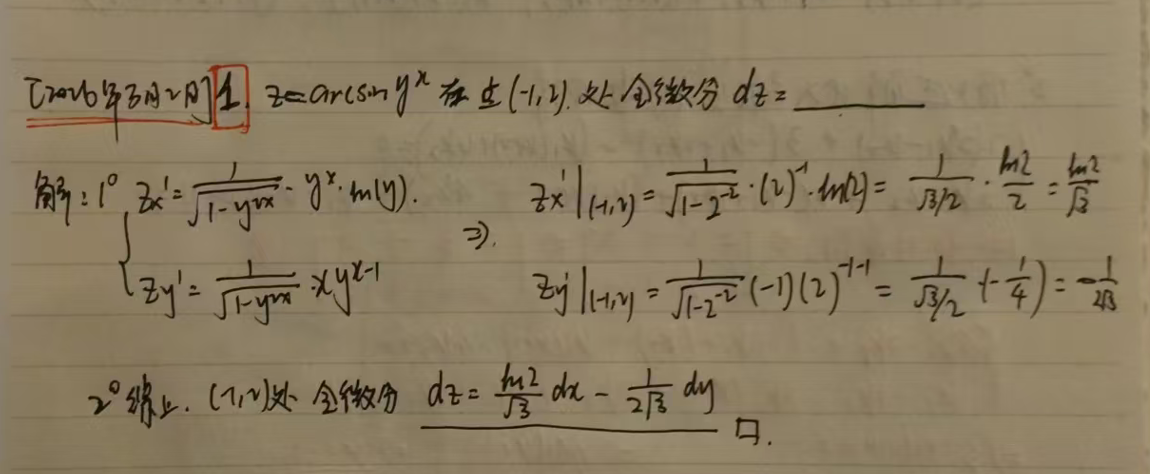 [2026年3月2日] 1. z=arcsin y^x 在点(-1,2).处全微分 dz=______
解: 1° Zx'=1/√(1-y^{2x}) · y^x · ln(y). ⇒. Zx'|(-1,2) = 1/√(1-2^{-2}) · (2)^{-1} · ln(2) = 1/(√3/2) · ln2/2 = ln2/√3
Zy'=1/√(1-y^{2x}) · xy^{x-1} Zy'|(-1,2) = 1/√(1-2^{-2}) (-1)(2)^{-1-1} = 1/(√3/2) (-1/4) = -1/(2√3)
2° 综上. (-1,2)处 全微分 dz = ln2/√3 dx - 1/(2√3) dy □.